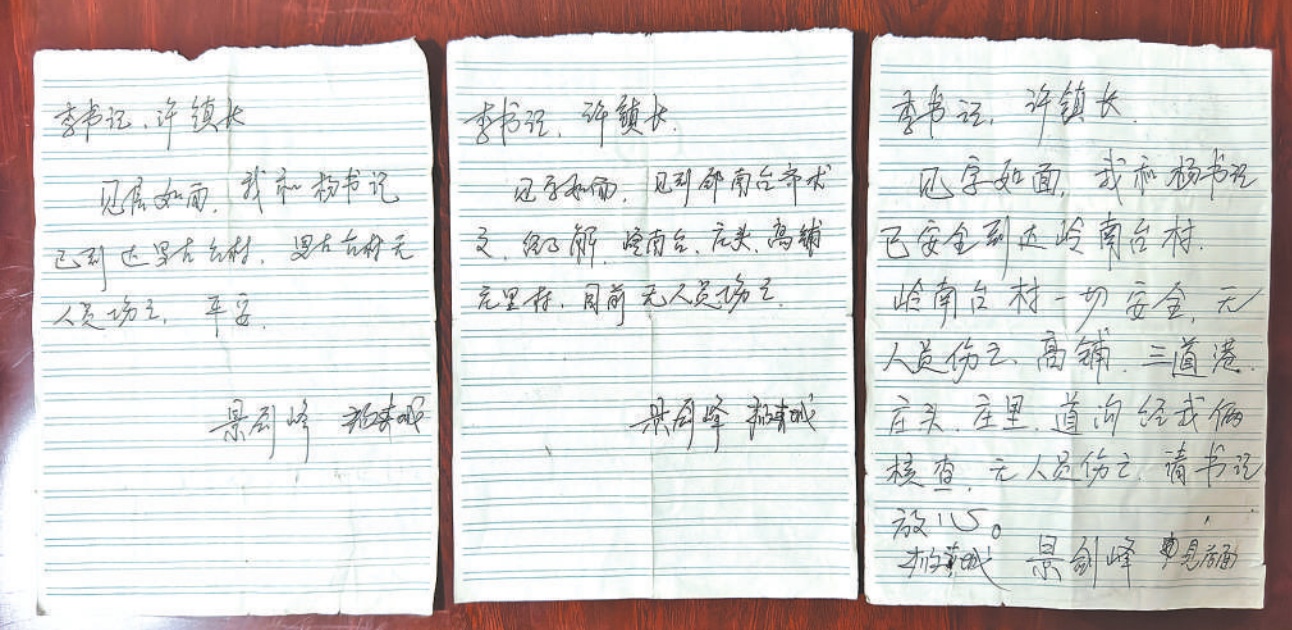 李书记、许镇长
见信如面，我和杨书记
已到达里古台村，里古台村无
人员伤亡，平安。
景剑峰
李书记、许镇长.
见字如面，见到岭南台
文，经了解，岭南台、庄头、高铺
庄里村，目前无人员伤亡.
景剑峰
李书记、许镇长.
见字如面，我和杨书记
已安全到达岭南台村.
岭南台村一切安全，无
人员伤亡、高铺、三道港、
庄头、庄里、道沟经我俩
核查，无人员伤亡，请书记
放心。
景剑峰 见背面